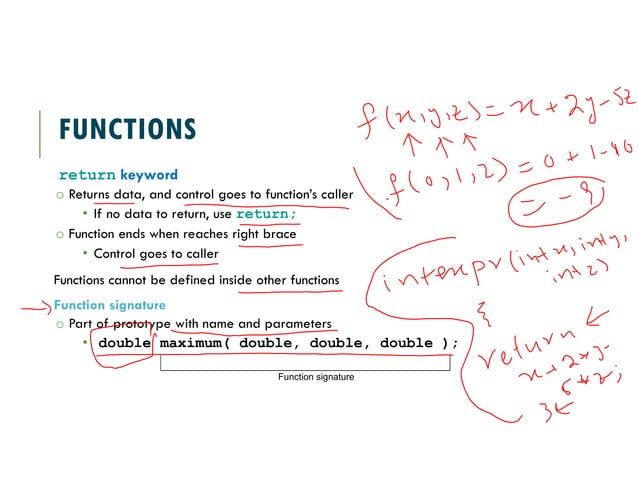 FUNCTIONS
return keyword
o Returns data, and control goes to function's caller
• If no data to return, use return;
o Function ends when reaches right brace
• Control goes to caller
Functions cannot be defined inside other functions
Function signature
o Part of prototype with name and parameters
• double maximum( double, double, double );
Function signature
f(x,y,z)=x+2y-5z
f(0,1,2)=0+1-
int expr(int x, int y,
int z)
{
return